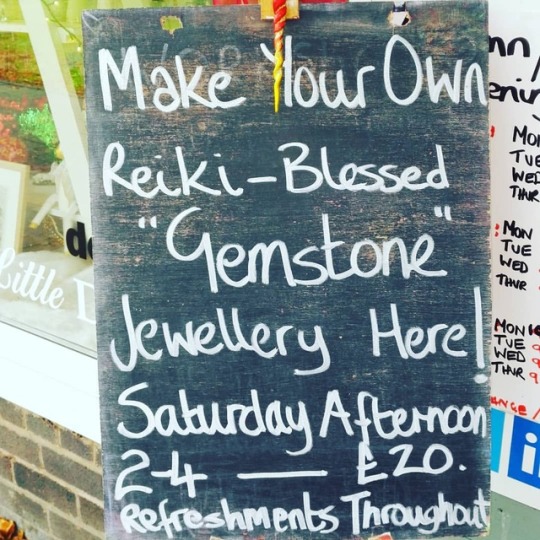 Make Your Own
Reiki-Blessed
"Gemstone"
Jewellery Here!
Saturday Afternoon
2-4 — £20.
Refreshments Throughout
Little
MON
TUE
WED
THUR
MON
TUE
WED
THUR
MON
TUE
WED
THUR